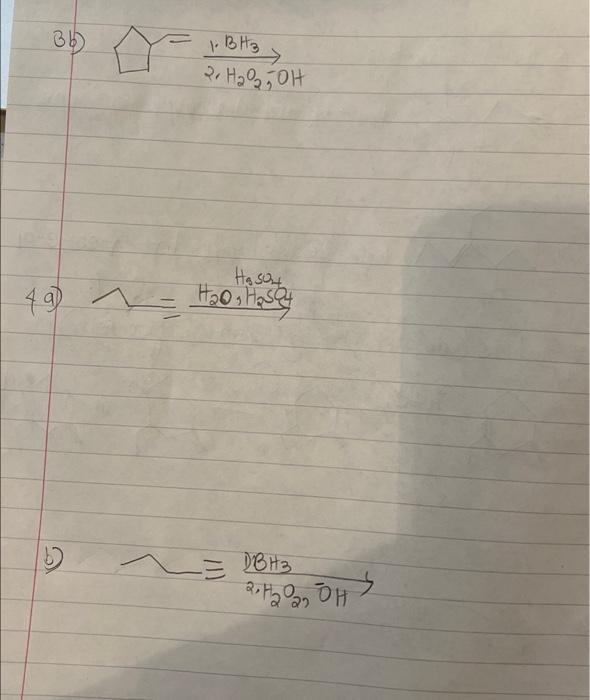 3b) 1. BH3
2. H2O2, -OH
4a) H2SO4
H2O, H2SO4
b) 1) BH3
2. H2O2, -OH